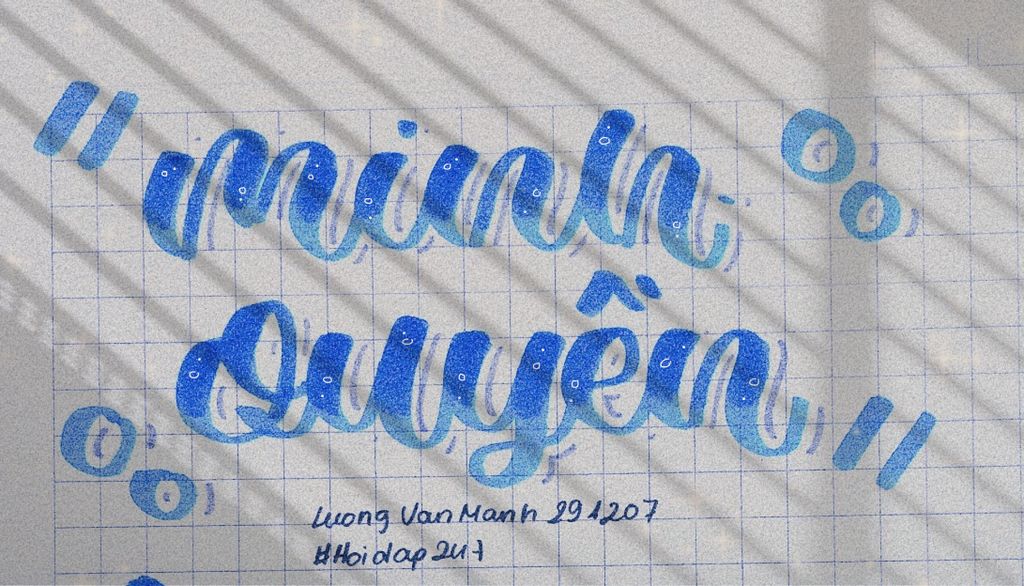 "minh
Quyền"
Luong Van Manh 291207
#Hoidap247